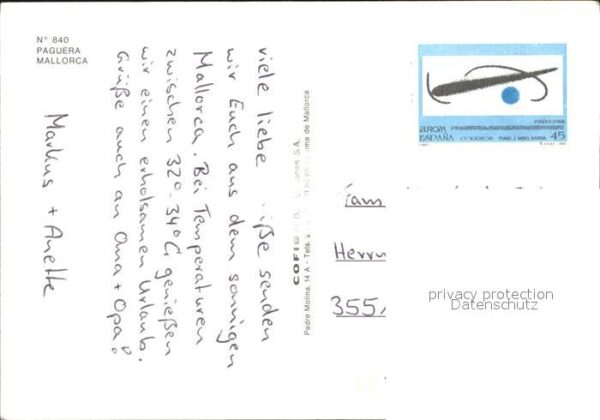 N° 840
PAGUERA
MALLORCA
viele liebe iße senden
wir Euch aus dem sonnigen
Mallorca. Bei Temperaturen
zwischen 32°-34°C genießen
wir einen erholsamen Urlaub.
Grüße auch an Oma + Opa!
Markus + Anette
Padre Molina, 14 A - Tels.
ma de Mallorca
EUROPA
ESPAÑA
CORREOS
45
Fam
Herrn
355
privacy protection
Datenschutz